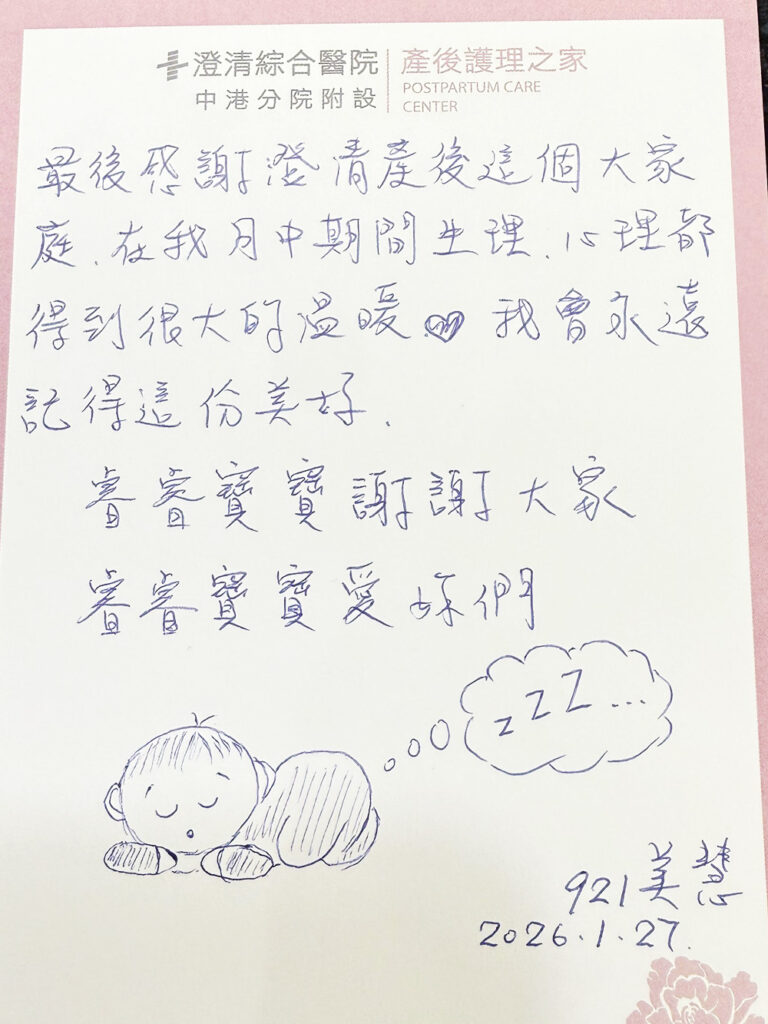 澄清綜合醫院
中港分院附設
產後護理之家
POSTPARTUM CARE
CENTER
最後感謝澄清產後這個大家
庭、在我月中期間生理、心理都
得到很大的溫暖 我會永遠
記得這份美好、
睿睿寶寶謝謝大家
睿睿寶寶愛妳們
z Z Z ...
921美慧
2026.1.27.